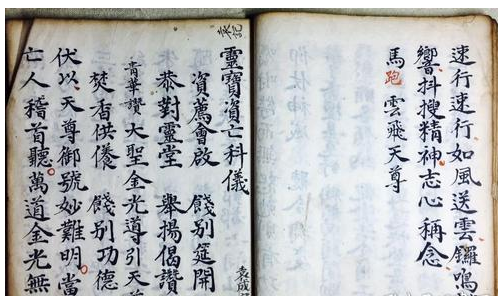 速行速行如風送雲鑼鳴
響抖搜精神志心稱念
馬跑雲飛天尊
靈寶資亡科儀
資薦會啟 餞別筵開
恭對靈堂 舉揚偈讚
青華讚大聖金光導引天尊
焚香供養 餞別功德
伏以天尊御號妙難明當
亡人稽首聽萬道金光無